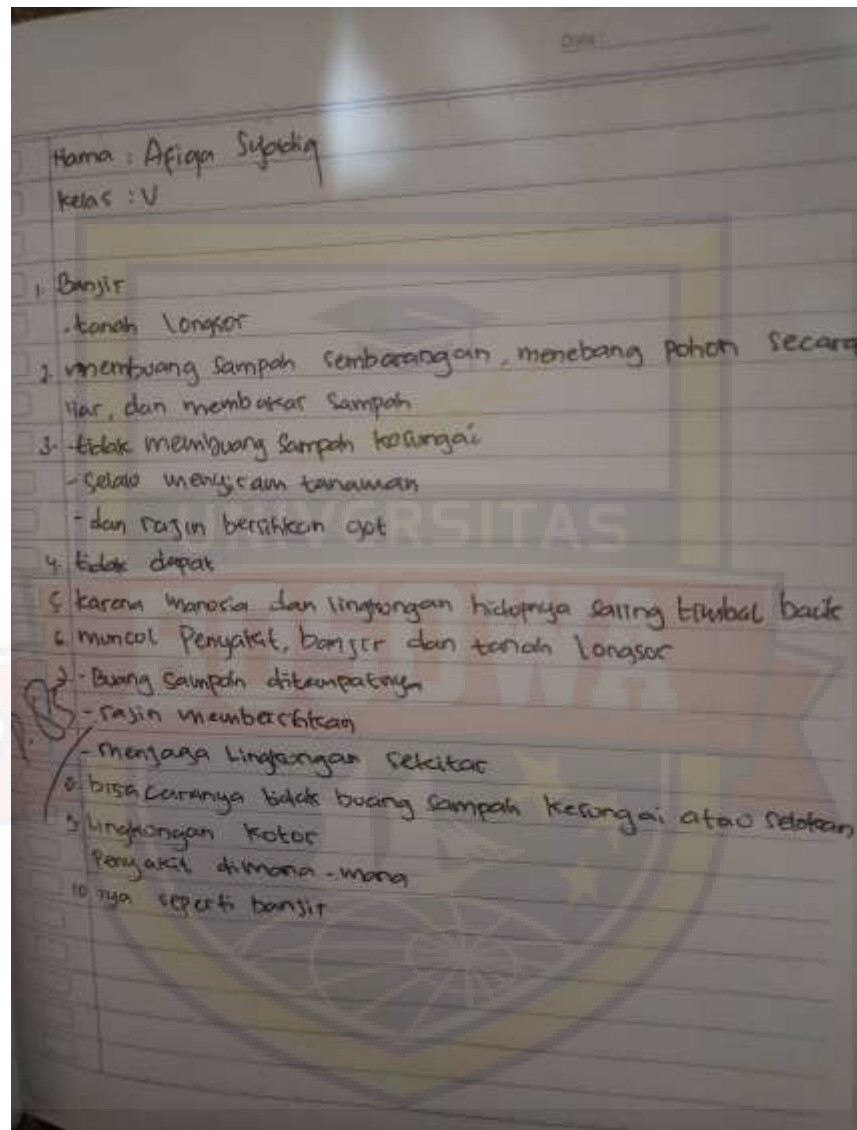 Nama : Afiqa Syadiq
Kelas : V
1. Banjir
. tanah longsor
2 membuang sampah sembarangan, menebang pohon secara
liar, dan membakar sampah
3. - tidak membuang sampah kesungai
- selalu menyiram tanaman
- dan rajin bersihkan got
4. tidak dapat
5 karena manusia dan lingkungan hidupnya saling timbal balik
6 muncul Penyakit, banjir dan tanah longsor
7 - Buang sampah ditempatnya
- rajin membersihkan
- menjaga Lingkungan sekitar
8. bisa caranya tidak buang sampah kesungai atau selokan
9 Lingkungan kotor
Penyakit dimana-mana
10 iya seperti banjir
UNIVERSITAS
BOSOWA